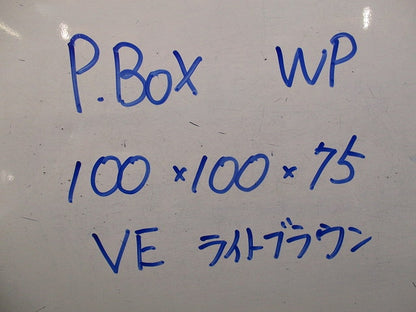 P.BOX WP
100×100×75
VE ライトブラウン